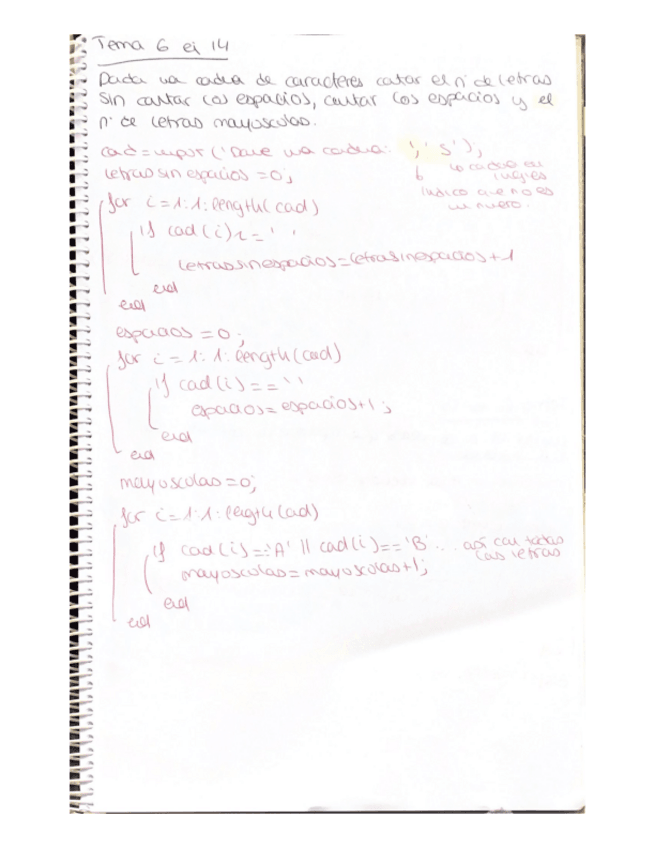 Tema 6 ej 14
Dada una cadena de caracteres contar el nº de letras
sin contar los espacios, contar los espacios y el
nº de letras mayusculas.
cad=input('Dame una cadena: ','s');
↳ cadena en
ingles
indico que no es
un numero.
letrassinespacios=0;
for i=1:1:length(cad)
if cad(i)~=' '
letrassinespacios=letrassinespacios+1
end
end
espacios=0;
for i=1:1:length(cad)
if cad(i)==' '
espacios=espacios+1;
end
end
mayusculas=0;
for i=1:1:length(cad)
if cad(i)=='A' || cad(i)=='B'... asi con todas
las letras
mayusculas=mayusculas+1;
end
end